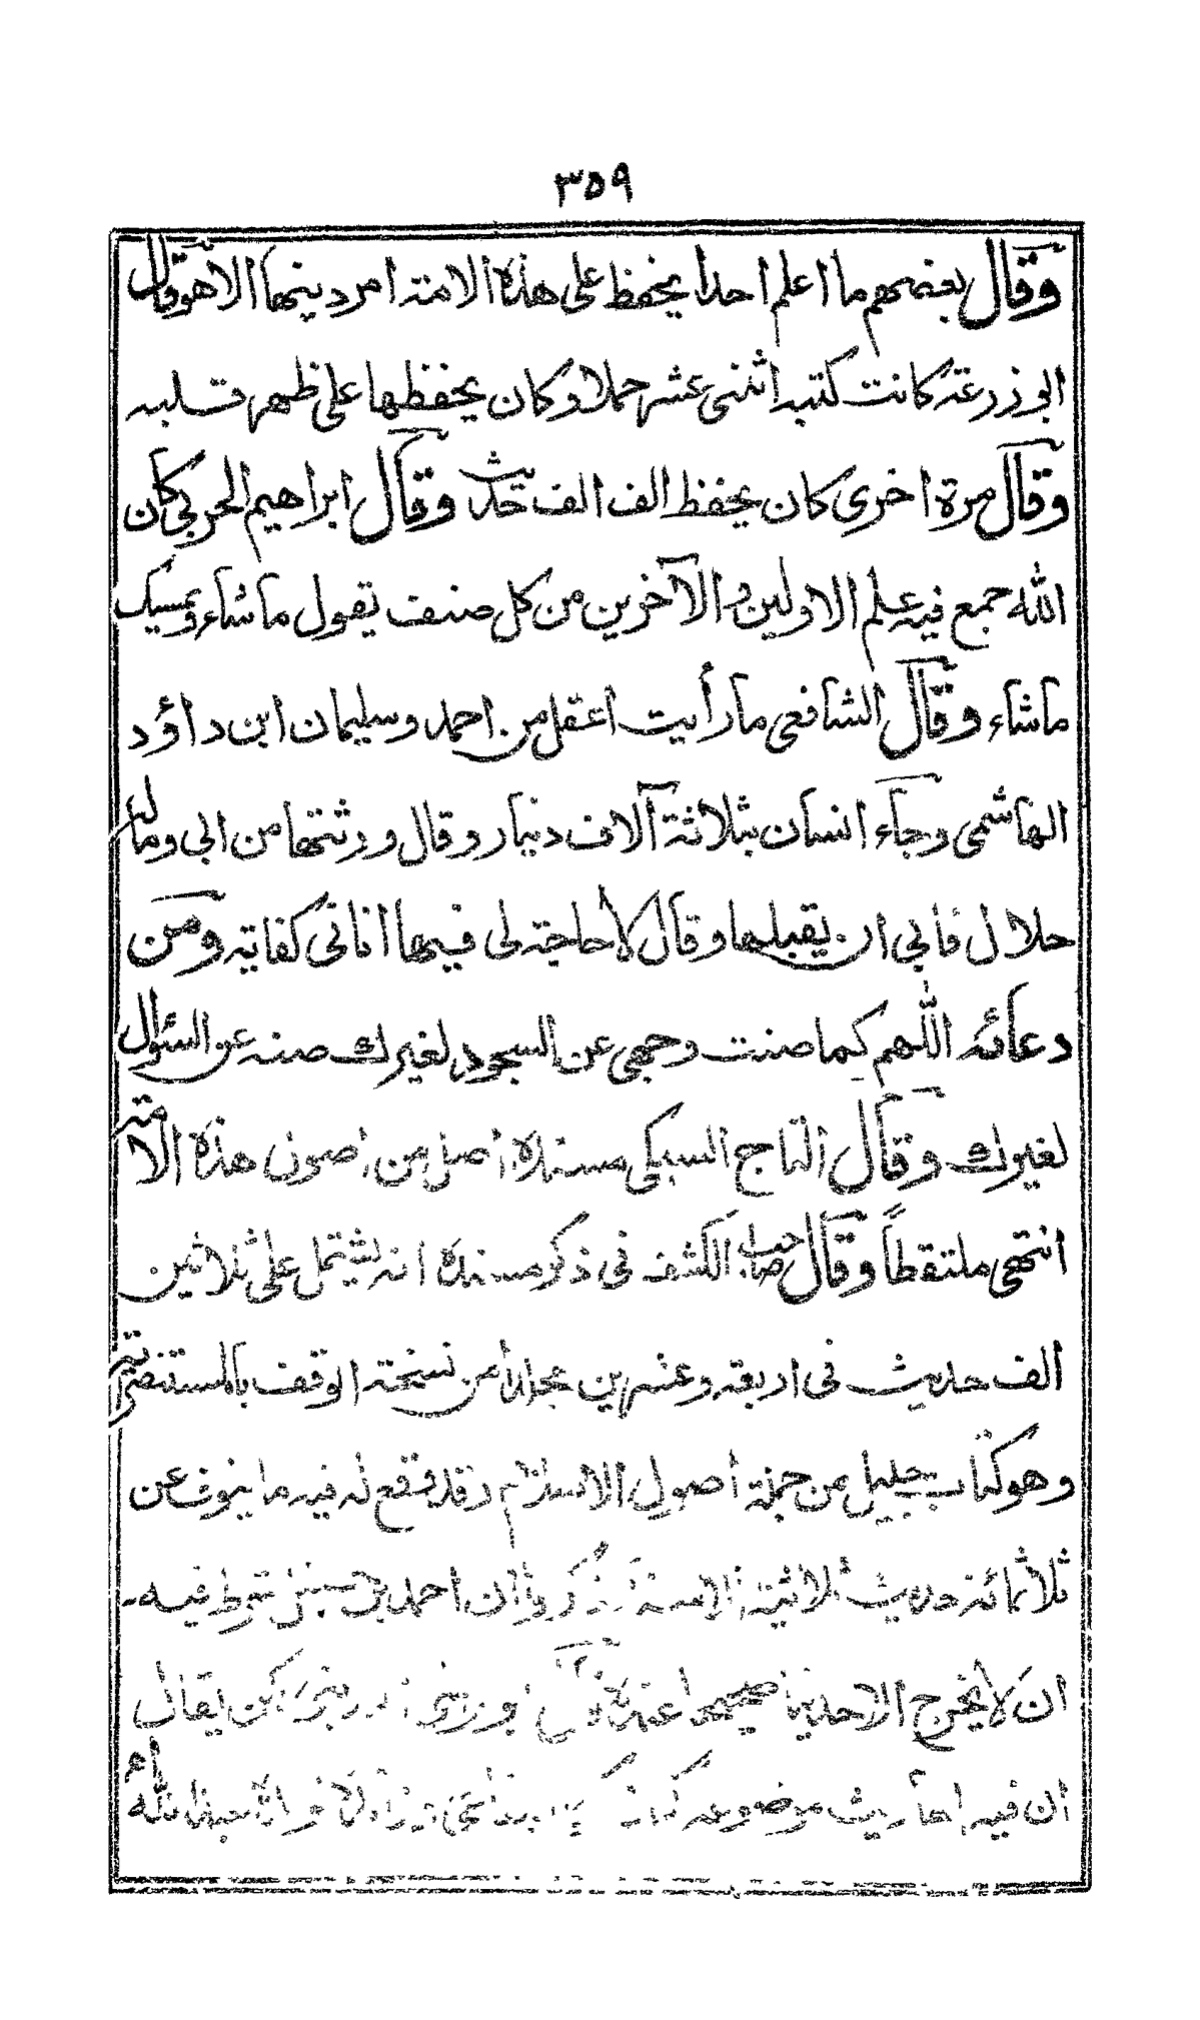 ٣٥٩
وقال بعضهم ما اعلم احدا يحفظ على هذه الامة امر دينها الا هو وقال
ابو زرعة كانت كتبه اثنى عشر حملا وكان يحفظها على ظهر قلبه
وقال مرة اخرى كان يحفظ الف الف حديث وقال ابراهيم الحربي كان
الله جمع فيه علم الاولين والآخرين من كل صنف يقول ما شاء ويمسك
ما شاء وقال الشافعي ما رأيت اعقل من احمد وسليمان ابن داؤد
الهاشمي وجآء انسان بثلاثة آلاف دينار وقال ورثتها من ابي وماله
حلال فأبي ان يقبلها وقال لا حاجة لي فيها انا في كفاية ومن
دعائه اللهم كما صنت وجهي عن السجود لغيرك صنه عن السئوال
لغيرك وقال التاج السبكي مسنده اصل من اصول هذه الامة
انتهى ملتقطاً وقال صاحب الكشف في ذكر مسنده انه يشتمل على ثلاثين
الف حديث في اربعة وعشرين مجلدا من نسخة الوقف بالمستنصرية
وهو كتاب جليل من جملة اصول الاسلام وقد وقع له فيه ما ينوف عن
ثلاثمائة حديث ثلاثية الاسناد ذكروا ان احمد بن حنبل شرط فيه
ان لا يخرج الا حديثا صحيحا عنده يقال
ان فيه احاديث موضوعة عبد الله